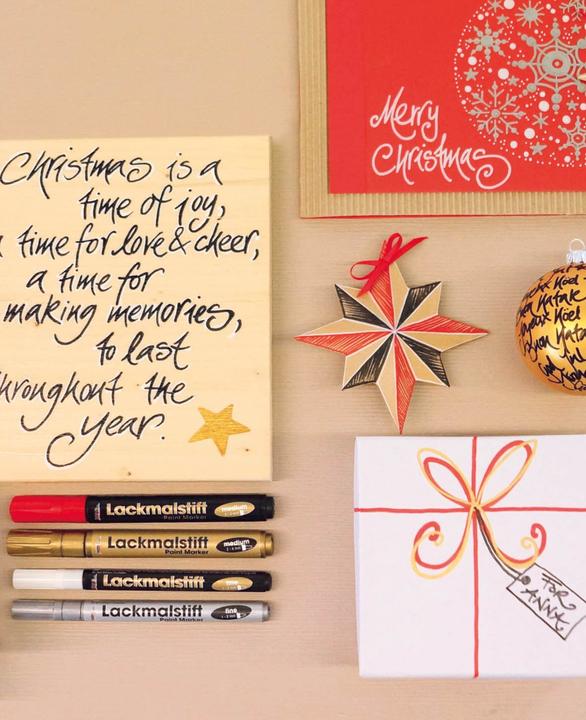 Merry
Christmas
Christmas is a
time of joy,
a time for love & cheer,
a time for
making memories,
to last
throughout the
year.
Lackmalstift
Paint Marker
medium
Lackmalstift
Paint Marker
medium
Lackmalstift
Paint Marker
fine
Lackmalstift
Paint Marker
fine
FOR
ANNA